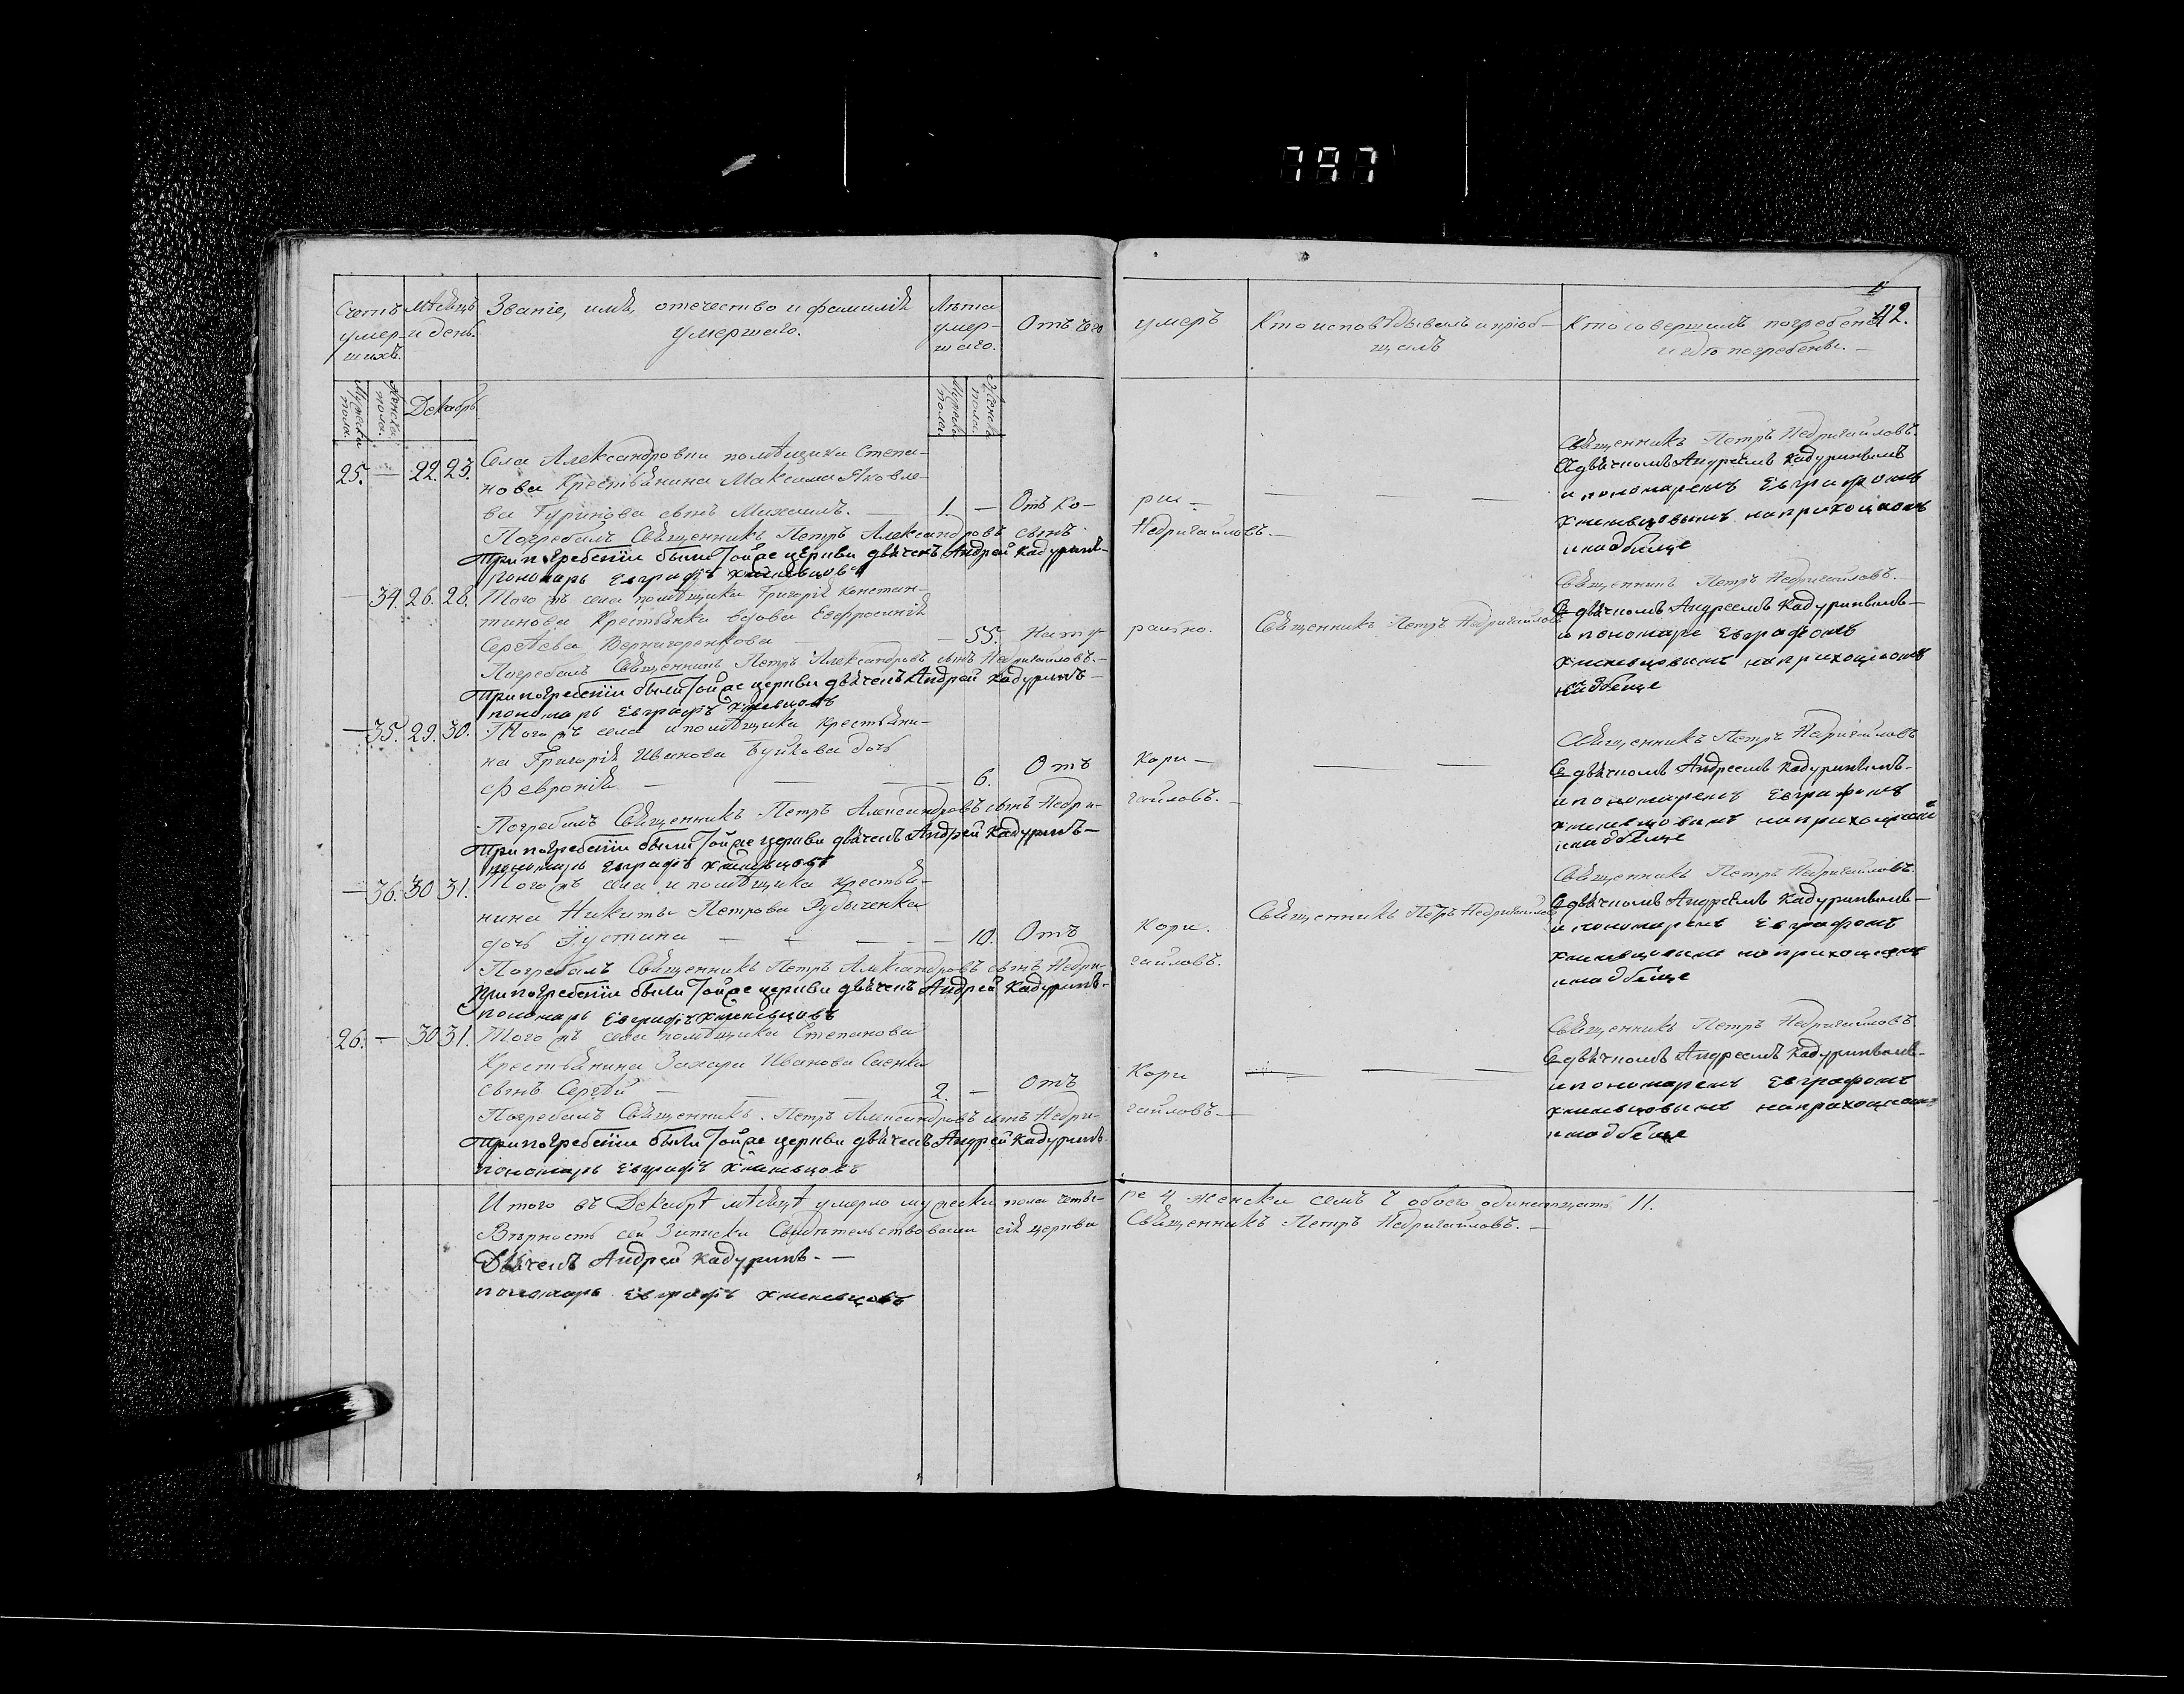 797
42.
Счетъ умер-шихъ.
Мѣсяцъ и день.
Званіе, имя, отечество и фамилія
умершаго.
Лѣта умер-шаго.
Отъ чего
умеръ
Кто исповѣдывалъ и пріоб-
щалъ
Кто совершилъ погребеніе
и гдѣ погребены.
Мужеска пола.
Женска пола.
Декабрь
Мужеска пола.
Женска пола.
25. — 22. 23. Села Александровки помѣщика Степа-
нова Крестьянина Максима Яковле-
ва Гуринова сынъ Михаилъ. — 1. — Отъ Ко-
ри —
Погребалъ Священникъ Петръ Александровъ сынъ
Недригайловъ. —
При погребеніи были тойже церкви дьячекъ Андрей Кадуринъ —
пономарь Евграфъ
Священникъ Петръ Недригайловъ.
Съ дьячкомъ Андреемъ Кадуринымъ
и пономаремъ Евграфомъ
на приходскомъ
кладбище
— 34. 26. 28. Того жъ села помѣщика Григорія Констан-
тинова Крестьянка вдова Евфросинія
Сергѣева Вернигоренкова — 55. Нату-
рально.
Священникъ Петръ Недригайловъ
Погребалъ Священникъ Петръ Александровъ сынъ Недригайловъ. —
При погребеніи были тойже церкви дьячекъ Андрей Кадуринъ —
пономарь Евграфъ
Священникъ Петръ Недригайловъ.
Съ дьячкомъ Андреемъ Кадуринымъ —
и пономаре Евграфомъ
на приходскомъ
кладбище
— 35. 29. 30. Того жъ села и помѣщика Крестьяни-
на Григорія Иванова Буйкова дочь
Февронія — — — 6. Отъ
Кори —
Погребалъ Священникъ Петръ Александровъ сынъ Недри-
гайловъ. —
При погребеніи были тойже церкви дьячекъ Андрей Кадуринъ —
пономарь Евграфъ
Священникъ Петръ Недригайловъ
Съ дьячкомъ Андреемъ Кадуринымъ —
и пономаремъ Евграфомъ
кладбище
— 36. 30 31. Того жъ села и помѣщика Крестья-
нина Никиты Петрова Рубыченка
дочь Устина — — — — 10. Отъ
Кори.
Священникъ Петръ Недригайловъ
Погребалъ Священникъ Петръ Александровъ сынъ Недри-
гайловъ.
При погребеніи были тойже церкви дьячекъ Андрей Кадуринъ —
пономарь Евграфъ
Священникъ Петръ Недригайловъ.
Съ дьячкомъ Андреемъ Кадуринымъ —
и пономаремъ Евграфомъ
на приходскомъ
кладбище
26. — 30 31. Того жъ села помѣщика Степанова
Крестьянина Захари Иванова Саенка
сынъ Сергѣй — — 2. — Отъ
Кори
Погребалъ Священникъ Петръ Александровъ сынъ Недри-
гайловъ —
При погребеніи были тойже церкви дьячекъ Андрей Кадуринъ
пономарь Евграфъ
Священникъ Петръ Недригайловъ
Съ дьячкомъ Андреемъ Кадуринымъ —
и пономаремъ Евграфомъ
на приходскомъ
кладбище
Итого въ Декабрѣ мѣсяцѣ умерло мужеска пола четве-
ре 4 женска семь 7 обоего одинатцать 11.
Вѣрность сей Записки Свидѣтельствовали сія церкви
Священникъ Петръ Недригайловъ. —
Дьячекъ Андрей Кадуринъ. —
пономарь Евграфъ